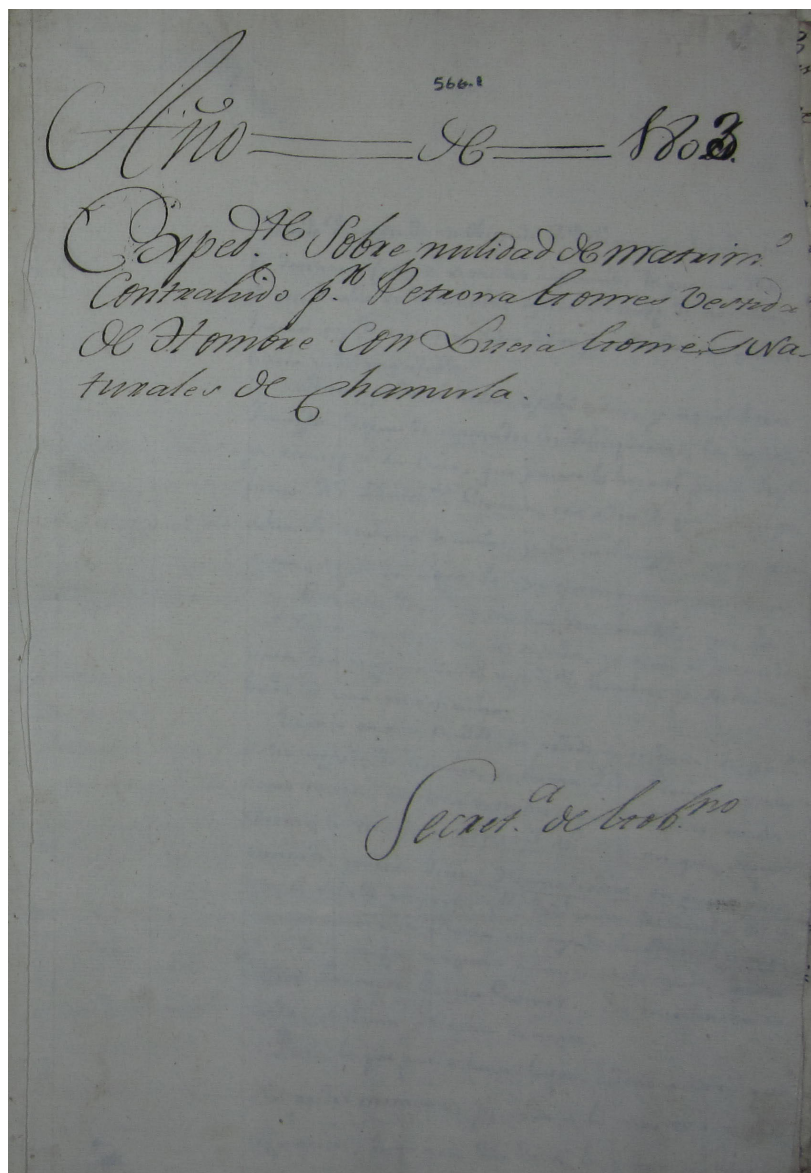 566-1
Año de 1803.
Exped.te Sobre nulidad de matrim.o
Contrahido p.r Petrona Gomes Vestida
de Hombre Con Lucia Gomes Na
turales de Chamula.
Secret.a de Gob.no